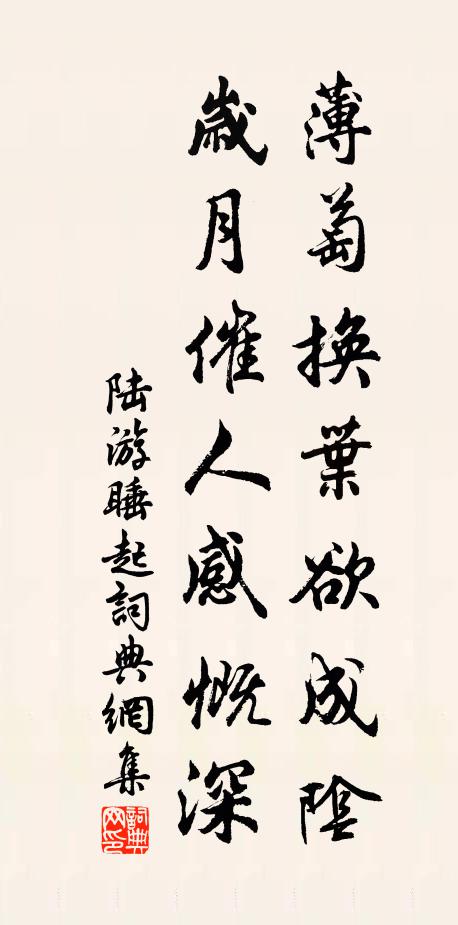 薄萄換葉欲成陰
歲月催人感慨深
陆游睡起詞典網集
詞典
网印